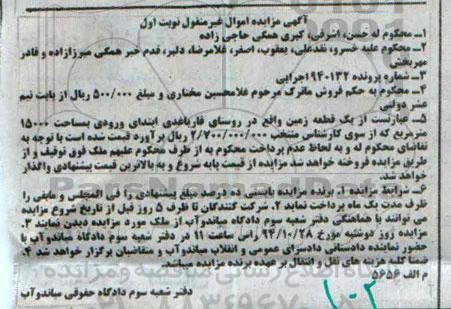 آگهی مزایده اموال غیرمنقول نوبت اول
۱ـ محکوم له حسن، اشرفی، کبری همگی حاجی زاده
۲ـ محکوم علیه خسرو، نقدعلی، یعقوب، اصغر، غلامرضا، دلبر، قدم خیر همگی میرزازاده و قادر
مهربخش
۳ـ شماره پرونده ۹۴۰۱۳۲ اجرایی
۴ـ محکوم به حکم فروش ماترک مرحوم غلامحسین مختاری و مبلغ ۵۰۰/۰۰۰ ریال از بابت نیم
عشر دولتی
۵ـ عبارتست از یک قطعه زمین واقع در روستای قاریاغدی ابتدای ورودی بمساحت ۱۵۰۰۰
مترمربع که از سوی کارشناس منتخب ۲/۷۰۰/۰۰۰/۰۰۰ ریال برآورد قیمت شده است با توجه به
تقاضای محکوم له و به لحاظ عدم پرداخت محکوم به از طرف محکوم علیهم ملک فوق توقیف و از
طریق مزایده فروخته خواهد شد مزایده از قیمت پایه شروع و به بالاترین قیمت پیشنهادی واگذار
خواهد شد.
۶ـ شرایط مزایده ۱. برنده مزایده بایستی ده درصد مبلغ پیشنهادی را فی المجلس و مابقی را
ظرف مدت یک ماه پرداخت نماید ۲. شرکت کنندگان تا ظرف ۵ روز قبل از تاریخ شروع مزایده
می توانند با هماهنگی دفتر شعبه سوم دادگاه میاندوآب از ملک مورد مزایده دیدن نمایند ۳.
مزایده روز دوشنبه مورخ ۹۴/۱۰/۲۸ راس ساعت ۱۱ در دفتر شعبه سوم دادگاه میاندوآب با
حضور نماینده دادستانی دادسرای عمومی و انقلاب میاندوآب و متقاضیان برگزار خواهد شد ۴.
ضمنا کلیه هزینه های نقل و انتقال بر عهده برنده مزایده میباشد.
م الف ۵۶۵۶
دفتر شعبه سوم دادگاه حقوقی میاندوآب
۱۰۳